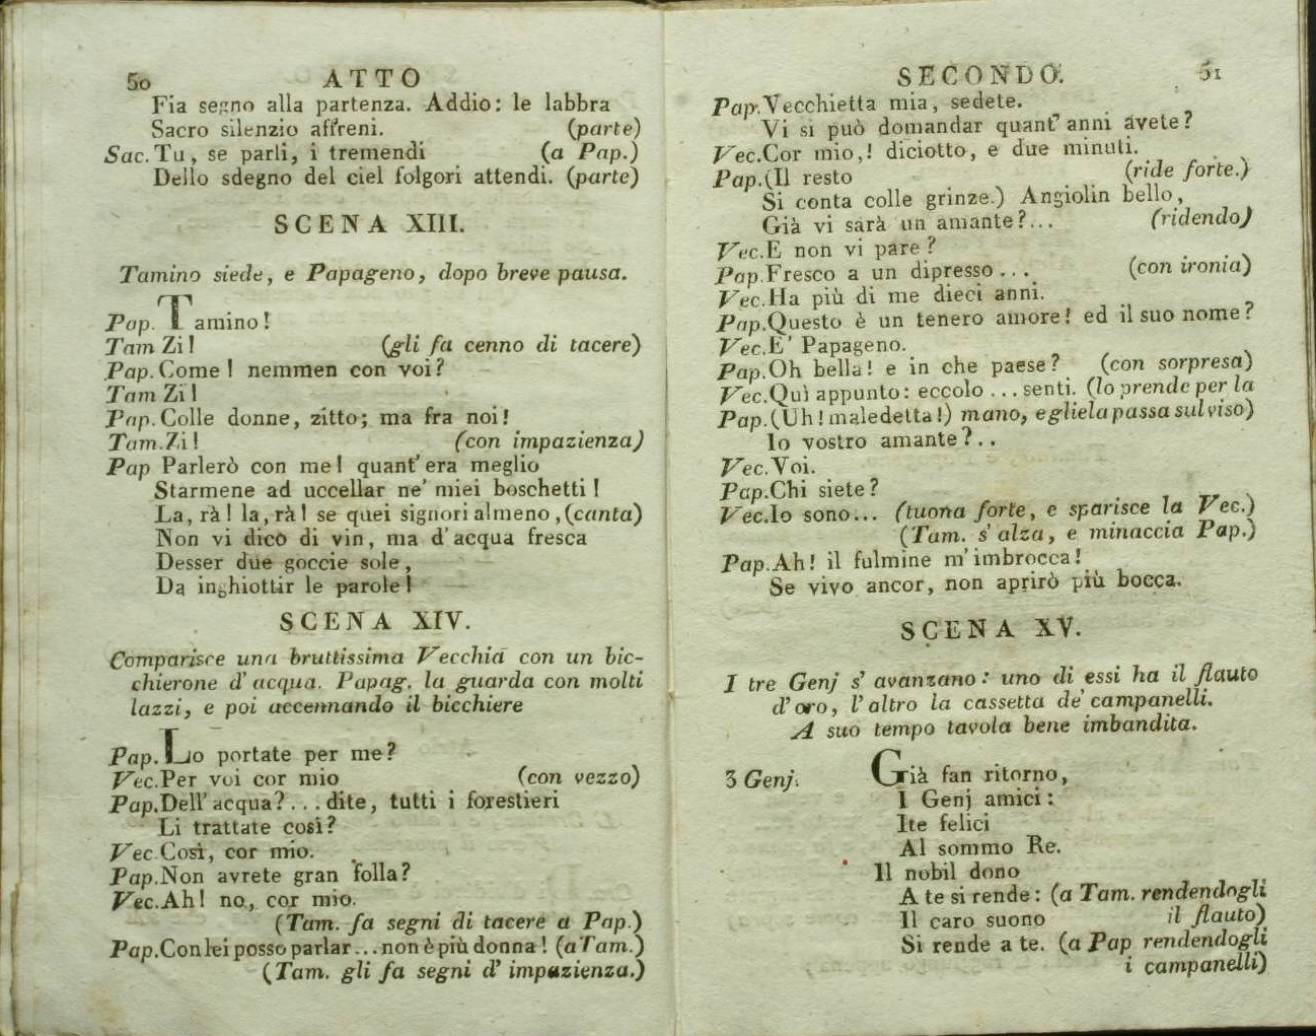 50 ATTO
Fia segno alla partenza. Addio: le labbra
Sacro silenzio affreni. (parte)
Sac. Tu, se parli, i tremendi (a Pap.)
Dello sdegno del ciel folgori attendi. (parte)
SCENA XIII.
Tamino siede, e Papageno, dopo breve pausa.
Pap. Tamino!
Tam Zi! (gli fa cenno di tacere)
Pap. Come! nemmen con voi?
Tam Zi!
Pap. Colle donne, zitto; ma fra noi!
Tam. Zi! (con impazienza)
Pap Parlerò con me! quant' era meglio
Starmene ad uccellar ne' miei boschetti!
La, rà! la, rà! se quei signori almeno, (canta)
Non vi dico di vin, ma d'acqua fresca
Desser due goccie sole,
Da inghiottir le parole!
SCENA XIV.
Comparisce una bruttissima Vecchia con un bic-
chierone d'acqua. Papag. la guarda con molti
lazzi, e poi accennando il bicchiere
Pap. Lo portate per me?
Vec. Per voi cor mio (con vezzo)
Pap. Dell' acqua?... dite, tutti i forestieri
Li trattate così?
Vec. Così, cor mio.
Pap. Non avrete gran folla?
Vec. Ah! no, cor mio.
(Tam. fa segni di tacere a Pap.)
Pap. Con lei posso parlar... non è più donna! (a Tam.)
(Tam. gli fa segni d' impazienza.)
SECONDO. 51
Pap. Vecchietta mia, sedete.
Vi si può domandar quant' anni avete?
Vec. Cor mio,! diciotto, e due minuti.
Pap. (Il resto (ride forte.)
Si conta colle grinze.) Angiolin bello,
Già vi sarà un amante?... (ridendo)
Vec. E non vi pare?
Pap. Fresco a un dipresso... (con ironia)
Vec. Ha più di me dieci anni.
Pap. Questo è un tenero amore! ed il suo nome?
Vec. E' Papageno.
Pap. Oh bella! e in che paese? (con sorpresa)
Vec. Quì appunto: eccolo... senti. (lo prende per la
Pap. (Uh! maledetta!) mano, e gliela passa sul viso)
Io vostro amante?..
Vec. Voi.
Pap. Chi siete?
Vec. Io sono... (tuona forte, e sparisce la Vec.)
(Tam. s'alza, e minaccia Pap.)
Pap. Ah! il fulmine m'imbrocca!
Se vivo ancor, non aprirò più bocca.
SCENA XV.
I tre Genj s' avanzano: uno di essi ha il flauto
d'oro, l'altro la cassetta de' campanelli.
A suo tempo tavola bene imbandita.
3 Genj. Già fan ritorno,
I Genj amici:
Ite felici
Al sommo Re.
Il nobil dono
A te si rende: (a Tam. rendendogli
Il caro suono il flauto)
Si rende a te. (a Pap rendendogli
i campanelli)